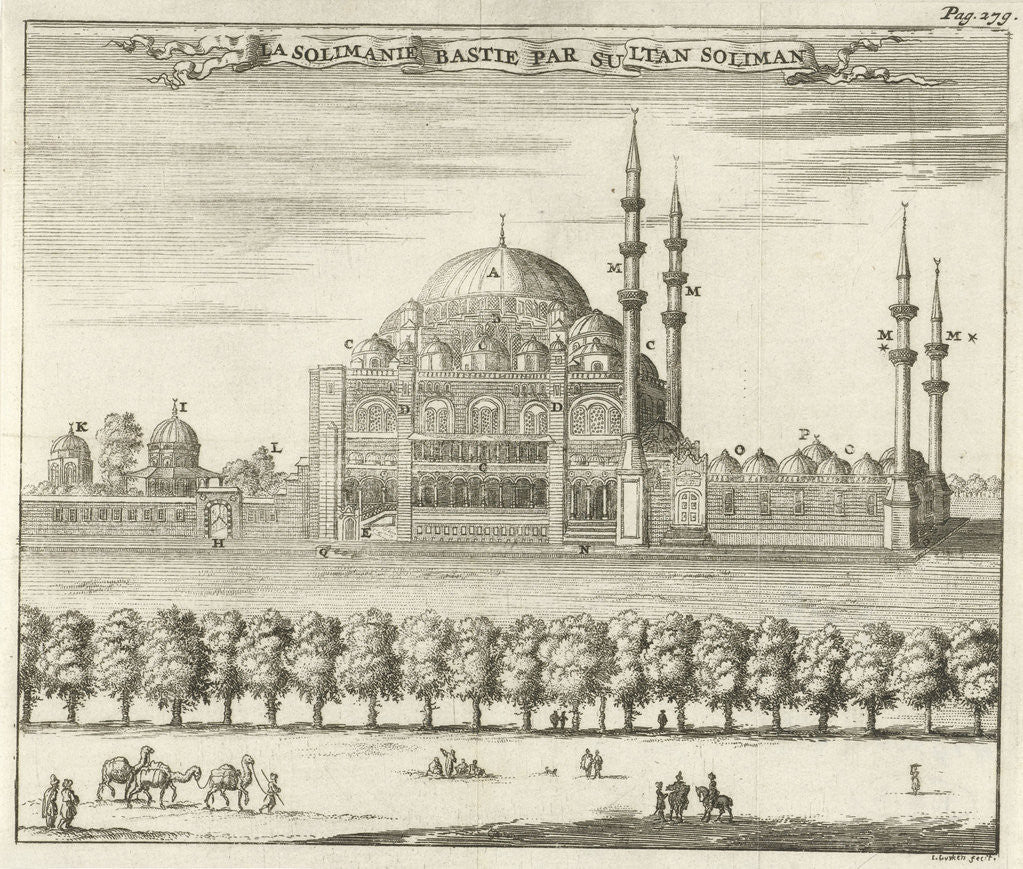 Pag. 279.
LA SOLIMANIE BASTIE PAR SULTAN SOLIMAN
A
B
C
C
M
M
M
M
D
D
K
I
L
G
O
P
C
H
E
Q
N
fecit.